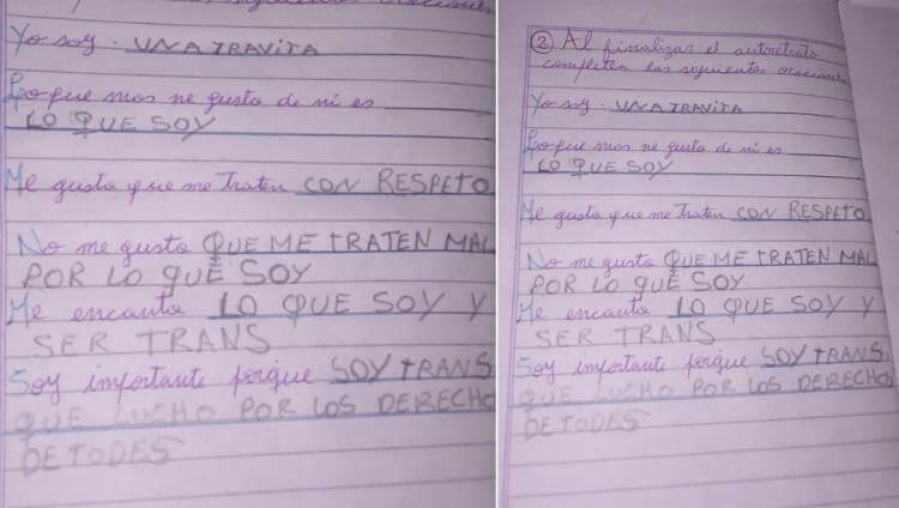 Yo soy. UNA TRAVITA
Lo que mas me gusta de mi es
LO QUE SOY
Me gusta que me traten CON RESPETO
No me gusta QUE ME TRATEN MAL
POR LO QUE SOY
Me encanta LO QUE SOY Y
SER TRANS
Soy importante porque SOY TRANS
QUE LUCHO POR LOS DERECHO
DE TODES
② Al finalizar el autoretrato
completen las siguientes oraciones
Yo soy. UNA TRAVITA
Lo que mas me gusta de mi es
LO QUE SOY
Me gusta que me traten CON RESPETO
No me gusta QUE ME TRATEN MAL
POR LO QUE SOY
Me encanta LO QUE SOY Y
SER TRANS
Soy importante porque SOY TRANS
QUE LUCHO POR LOS DERECHO
DE TODES